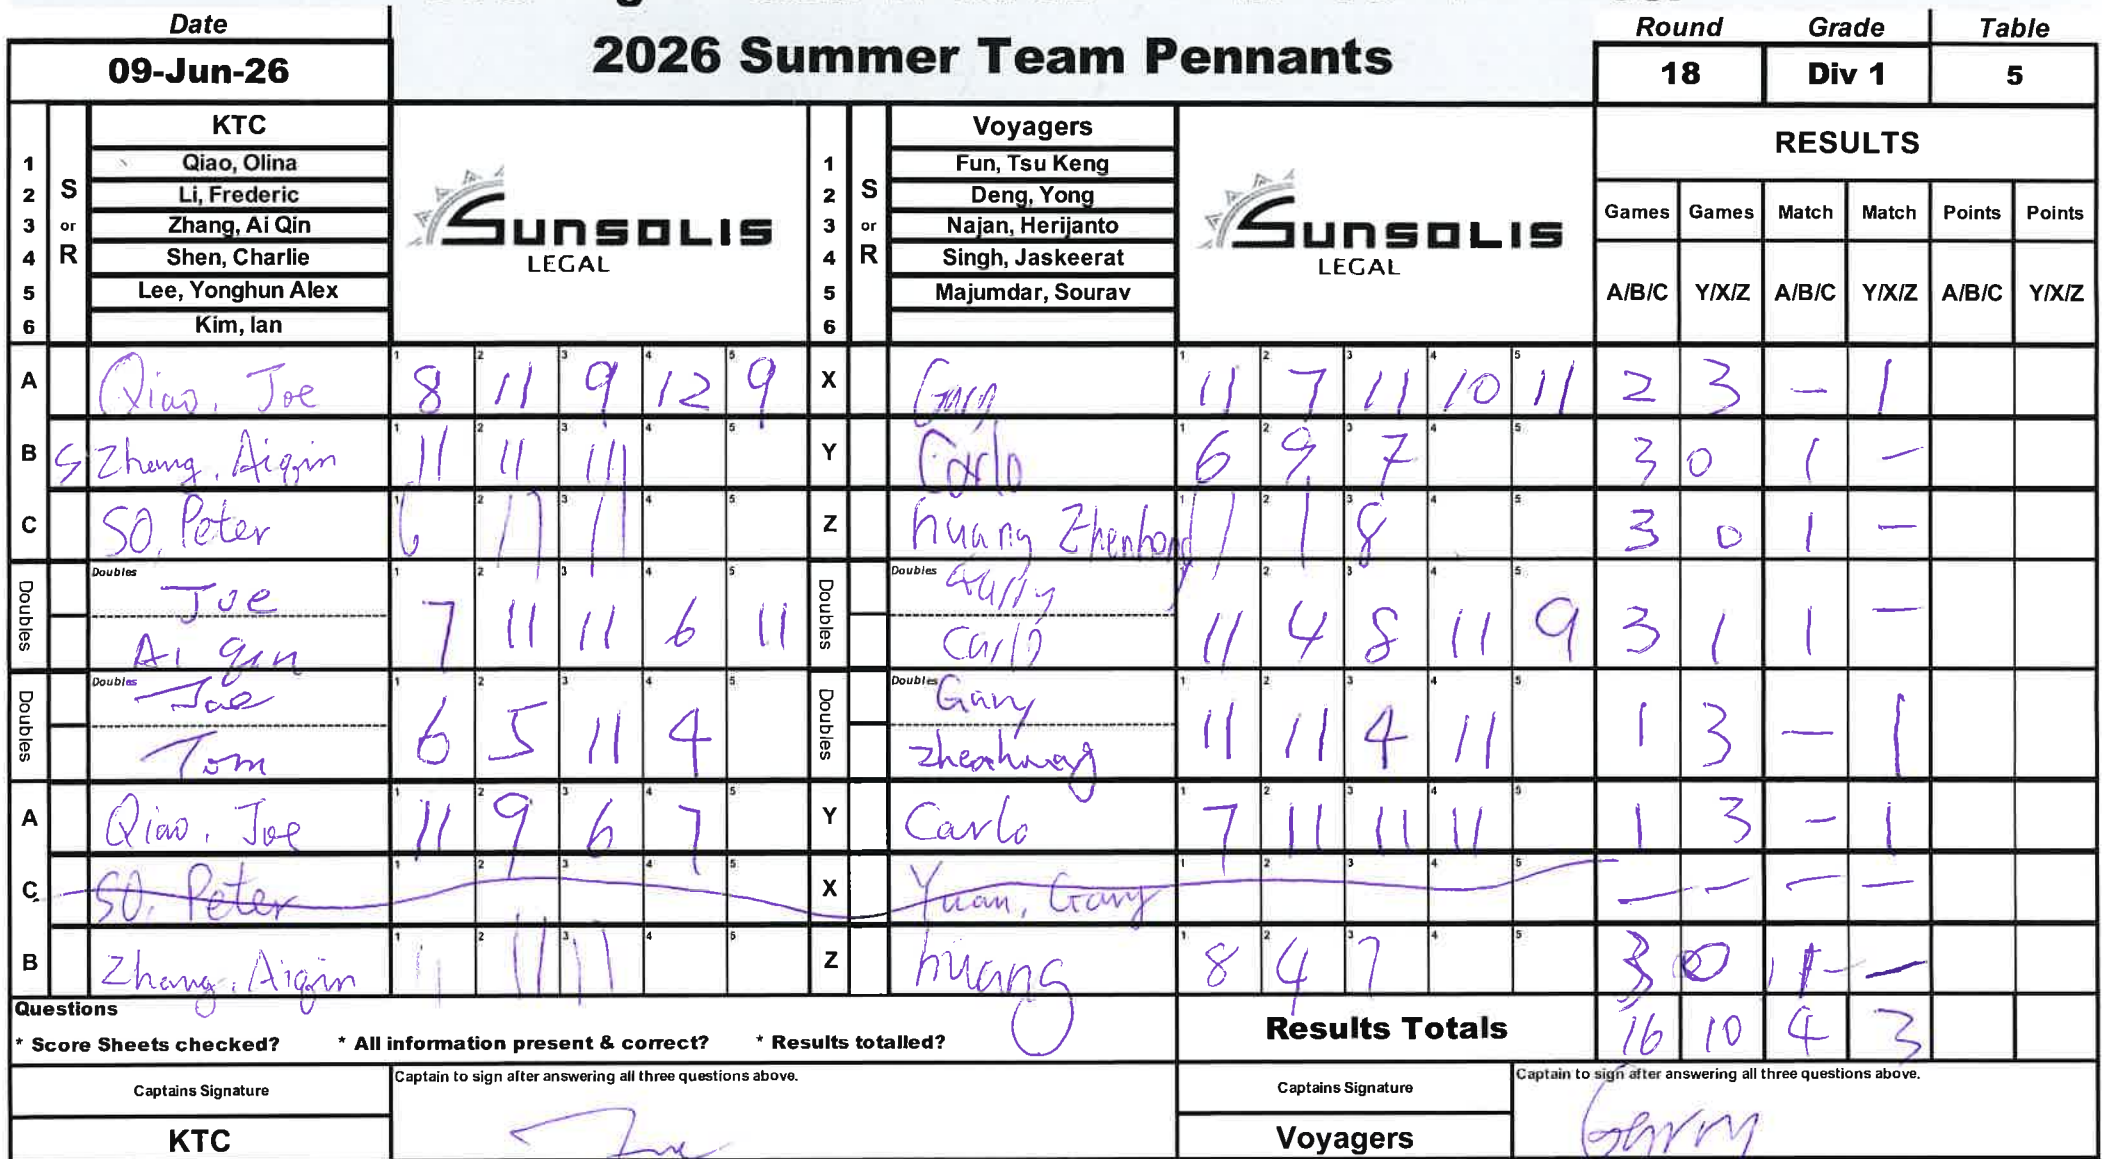 Date
2026 Summer Team Pennants
Round Grade Table
09-Jun-26
18 Div 1 5
KTC
Voyagers
RESULTS
1 Qiao, Olina
2 Li, Frederic
3 Zhang, Ai Qin
4 Shen, Charlie
5 Lee, Yonghun Alex
6 Kim, Ian
S
or
R
SUNSOLIS
LEGAL
1 Fun, Tsu Keng
2 Deng, Yong
3 Najan, Herijanto
4 Singh, Jaskeerat
5 Majumdar, Sourav
6
S
or
R
SUNSOLIS
LEGAL
Games Games Match Match Points Points
A/B/C Y/X/Z A/B/C Y/X/Z A/B/C Y/X/Z
A Qiao, Joe 8 11 9 12 9 X Gary 11 7 11 10 11 2 3 - 1
B S Zhang, Aiqin 11 11 11 Y Carlo 6 9 7 3 0 1 -
C SO, Peter 11 11 Z huang Zhenhong 8 3 0 1 -
Doubles Doubles Joe
Ai qin 7 11 11 6 11 Doubles Doubles Garry
Carlo 11 4 8 11 9 3 1 1 -
Doubles Doubles Joe
Tom 6 5 11 4 Doubles Doubles Gary
11 11 4 11 1 3 - 1
A Qiao, Joe 11 9 6 7 Y Carlo 7 11 11 11 1 3 - 1
C SO, Peter X Yuan, Gary - - - -
B Zhang, Aiqin 11 11 11 Z huang 8 4 7 3 0 1 -
Questions
* Score Sheets checked? * All information present & correct? * Results totalled?
Results Totals 16 10 4 3
Captains Signature Captain to sign after answering all three questions above.
Captains Signature Captain to sign after answering all three questions above.
KTC Joe
Voyagers Garry